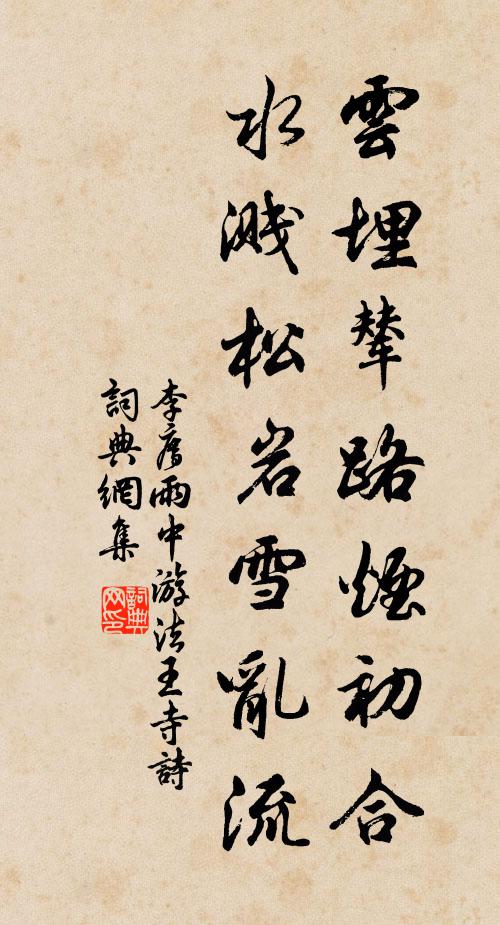 雲埋輦路煙初合
水濺松岩雪亂流
李廌雨中游法王寺詩
詞典網集
詞典
网印